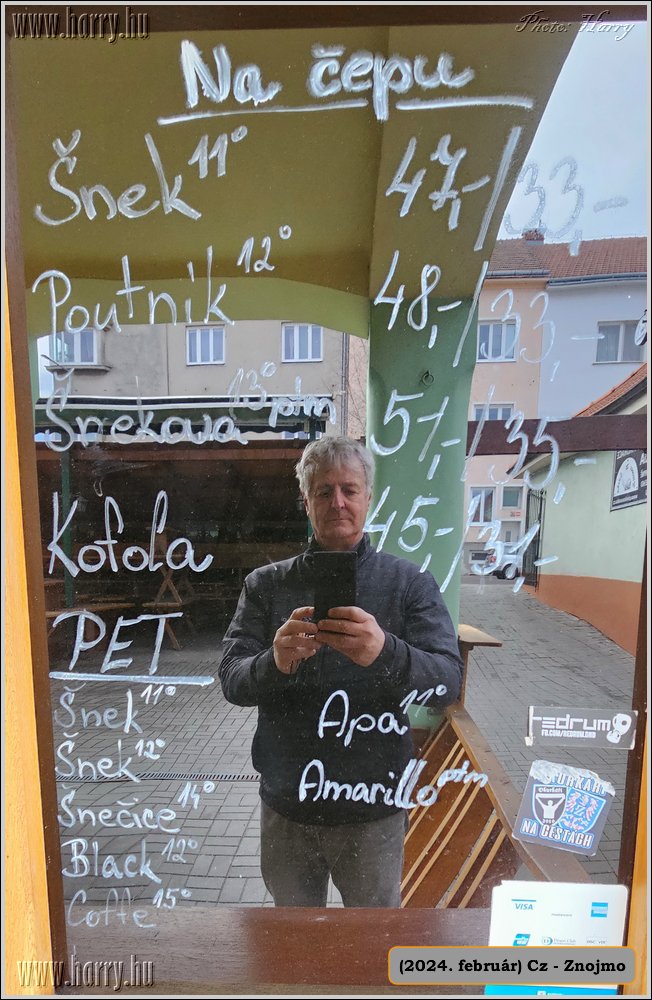 www.horry.hu
Photo: Horry
Na čepu
Šnek 11° 47,-/33,-
Poutník 12° 48,-/33,-
Šnekova 13° ptm 51,-/35,-
Kofola 45,-/31,-
PET
Šnek 11°
Šnek 12°
Šnečice 14°
Black 12°
Coffe 15°
Apa 11°
Amarillo ptm
REDRUM
FB.COM/REDRUM.DNB
NA CESTÁCH
VISA
www.horry.hu
(2024. február) Cz - Znojmo